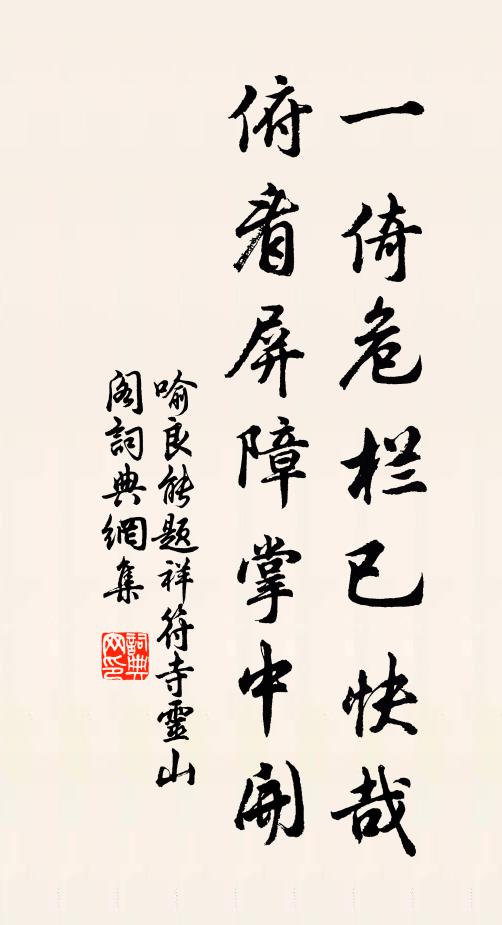 一倚危栏已快哉
俯看屏障掌中開
喻良能题祥符寺靈山
阁詞典網集
詞典
网印